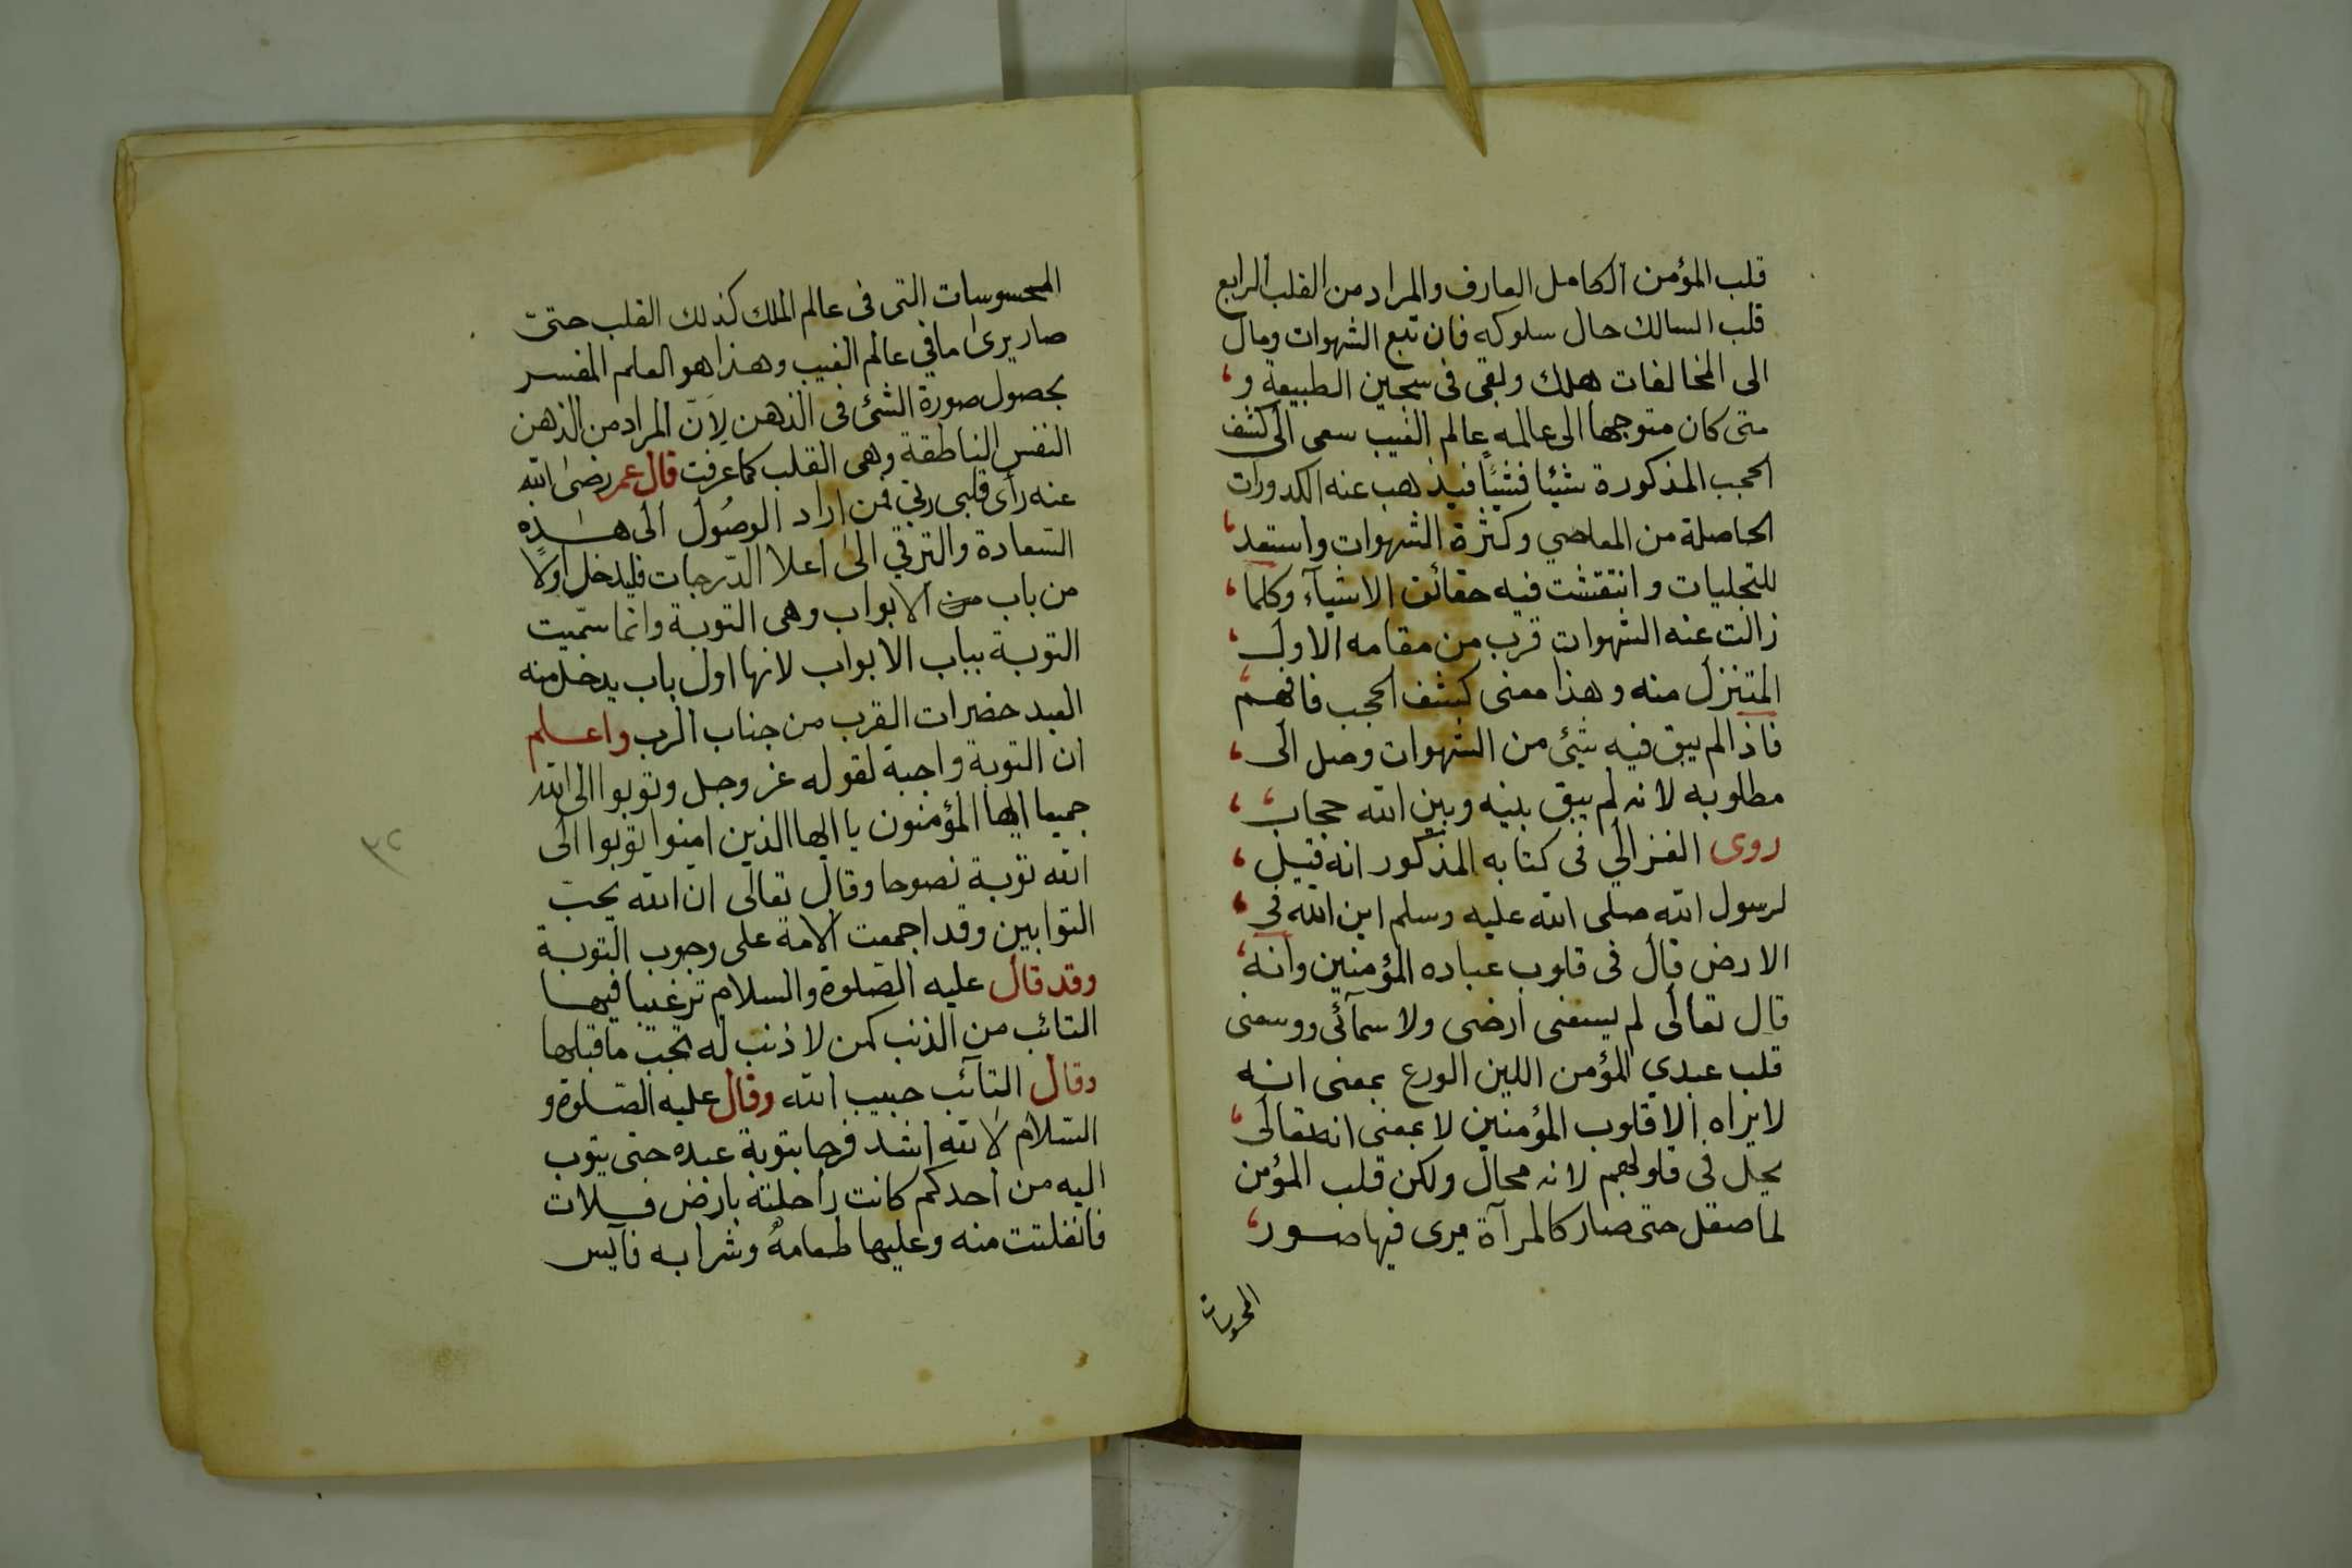 قلب المؤمن الكامل العارف والمراد من القلب الرابع
قلب السالك حال سلوكه فان تبع الشهوات ومال
الى المخالفات هلك وبقى فى سجين الطبيعة و
متى كان متوجها الى عالمه عالم الغيب سعى الى كشف
الحجب المذكورة شيئا فشيئا فيذهب عنه الكدورات
الحاصلة من المعاصي وكثرة الشهوات واستعد
للتجليات وانتقشت فيه حقائق الاشيآء وكلما
زالت عنه الشهوات قرب من مقامه الاول
المتنزل منه وهذا معنى كشف الحجب فافهم
فاذا لم يبق فيه شئ من الشهوات وصل الى
مطلوبه لانه لم يبق بينه وبين الله حجاب
روى الغزالي فى كتابه المذكور انه قيل
لرسول الله صلى الله عليه وسلم اين الله في
الارض قال فى قلوب عباده المؤمنين وانه
قال تعالى لم يسعنى ارضى ولا سمآئى ووسعنى
قلب عبدي المؤمن اللين الورع بمعنى انه
لا يراه الا قلوب المؤمنين لا بمعنى انه تعالى
يحل في قلوبهم لانه محال ولكن قلب المؤمن
لما صقل حتى صار كالمرآة يرى فيها صور
المحسوسات
المحسوسات التى فى عالم الملك كذلك القلب حتىّ
صار يرى ما في عالم الغيب وهذا هو العلم المفسر
بحصول صورة الشئ فى الذهن لِاَنّ المراد من الذهن
النفس الناطقة وهى القلب كما عرفت قال عمر رضى الله
عنه رأى قلبى ربي فمن اراد الوصُول الى هذه
السّعادة والترقي الى اعلا الدّرجات فليدخل اولًا
من باب من الابواب وهى التوبة وانما سمّيت
التوبة بباب الابواب لانها اول باب يدخل منه
العبد حضرات القرب من جناب الرب واعلم
ان التوبة واجبة لقوله عز وجل وتوبوا الى الله
جميعا ايها المؤمنون يا ايها الذين امنوا توبوا الى
الله توبة نصوحا وقال تعالى ان الله يحبّ
التوابين وقد اجمعت الامة على وجوب التوبة
وقد قال عليه الصّلوة والسلام ترغيبا فيها
التائب من الذنب كمن لا ذنب له تجبّ ما قبلها
وقال التآئب حبيب الله وقال عليه الصّلوة و
السّلام لَا لله اشد فرحا بتوبة عبده حتى يتوب
اليه من احدكم كانت راحلته بارض فلات
فانفلتت منه وعليها طعامهُ وشرابه فآيس
٣٢